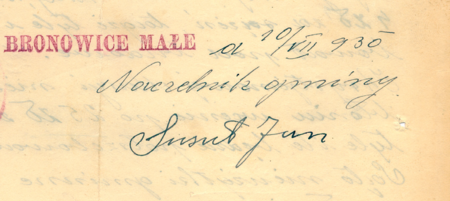 BRONOWICE MAŁE d 10/VII 930
Naczelnik gminy
Susuł Jan